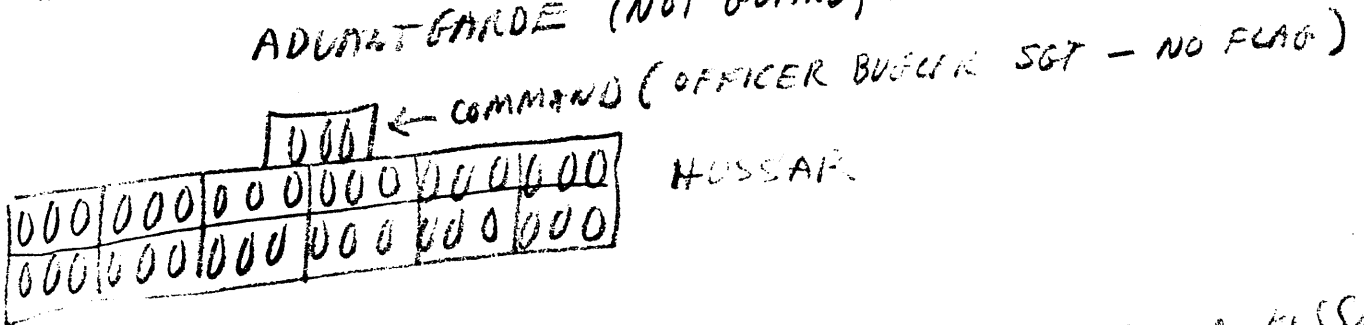 ADVANT-GARDE (NOT GUARD)
← COMMAND (OFFICER BUGLER SGT - NO FLAG)
000
000 000 000 000 000 000 HUSSAR
000 000 000 000 000 000